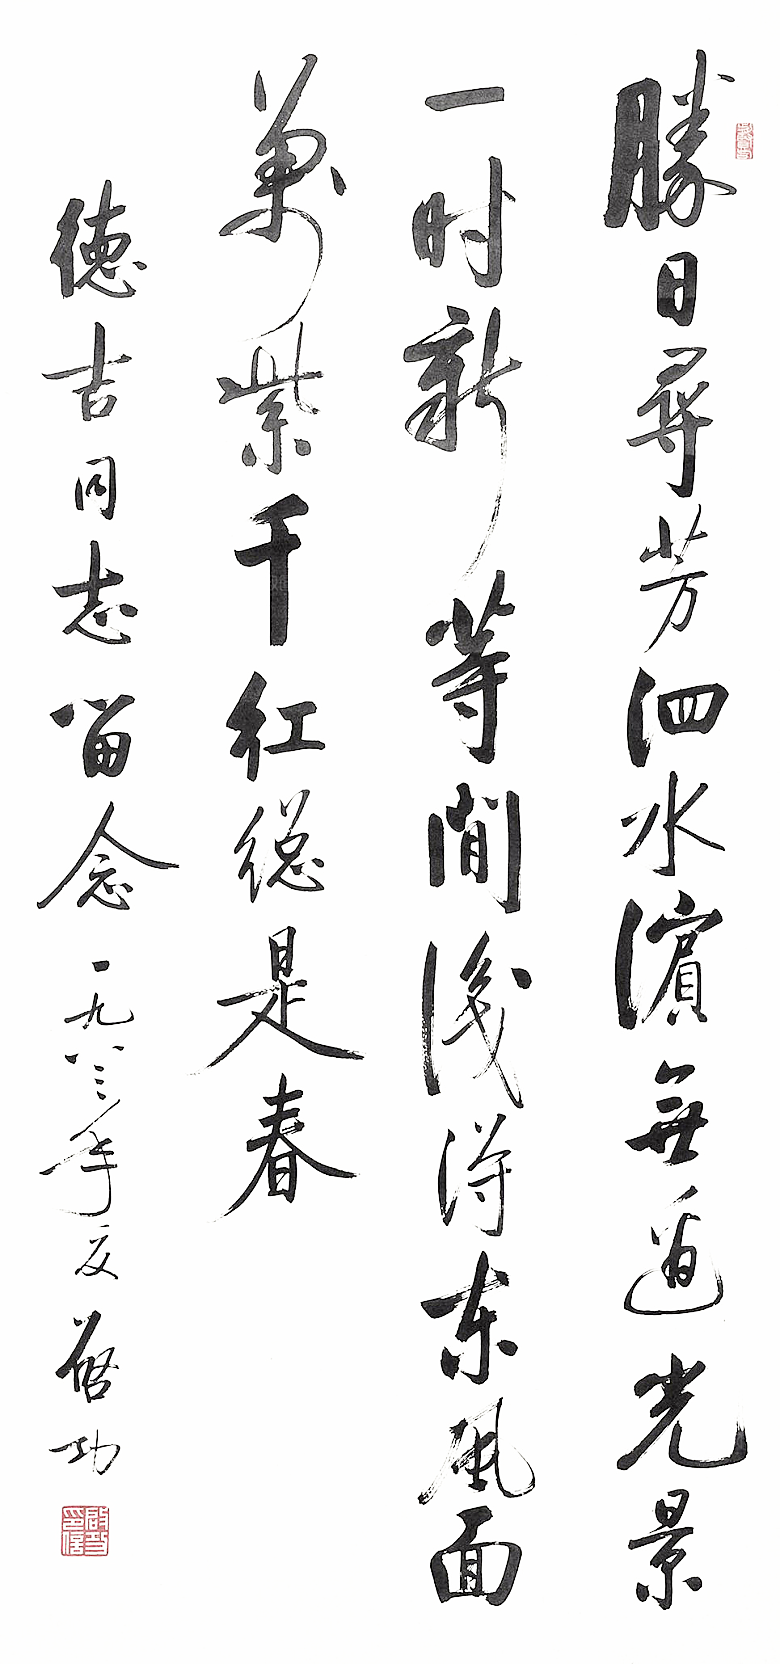 勝日尋芳泗水濱無邊光景
一时新等閒識得東風面
萬紫千紅總是春
德吉同志留念 一九八三年夏 啓功
啟功印信